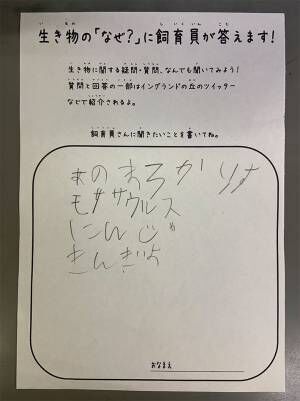 生き物の「なぜ?」に飼育員が答えます!
生き物に関する疑問・質問、なんでも聞いてみよう!
質問と回答の一部はイングランドの丘のツイッター
などで紹介されるよ。
飼育員さんに聞きたいことを書いてね。
あのまろかりす
モササウルス
にんじゃ
きんぎょ
おなまえ